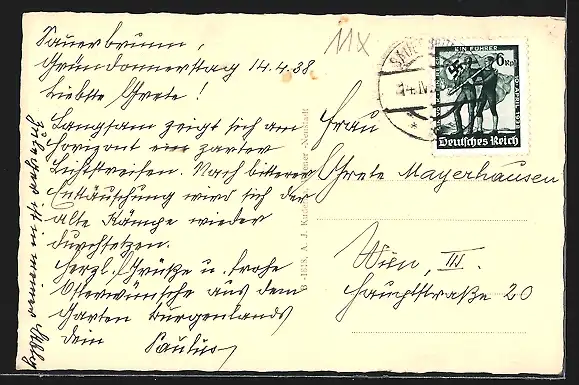 Sauerbrunn,
Gründonnerstag 14.4.38
Liebste Grete!
Langsam zeigt sich am
Horizont ein zarter
Lichtstreifen. Nach bitterer
Enttäuschung wird sich der
alte Kämpe wieder
durchsetzen.
Herzl. Grüße u. frohe
Osterwünsche aus dem
Garten Burgenlands
Dein Paulus
ist in meiner
11X
EIN FÜHRER
6 Rpf
Deutsches Reich
Frau
Grete Mayerhausen
Wien, III.
Hauptstraße 20